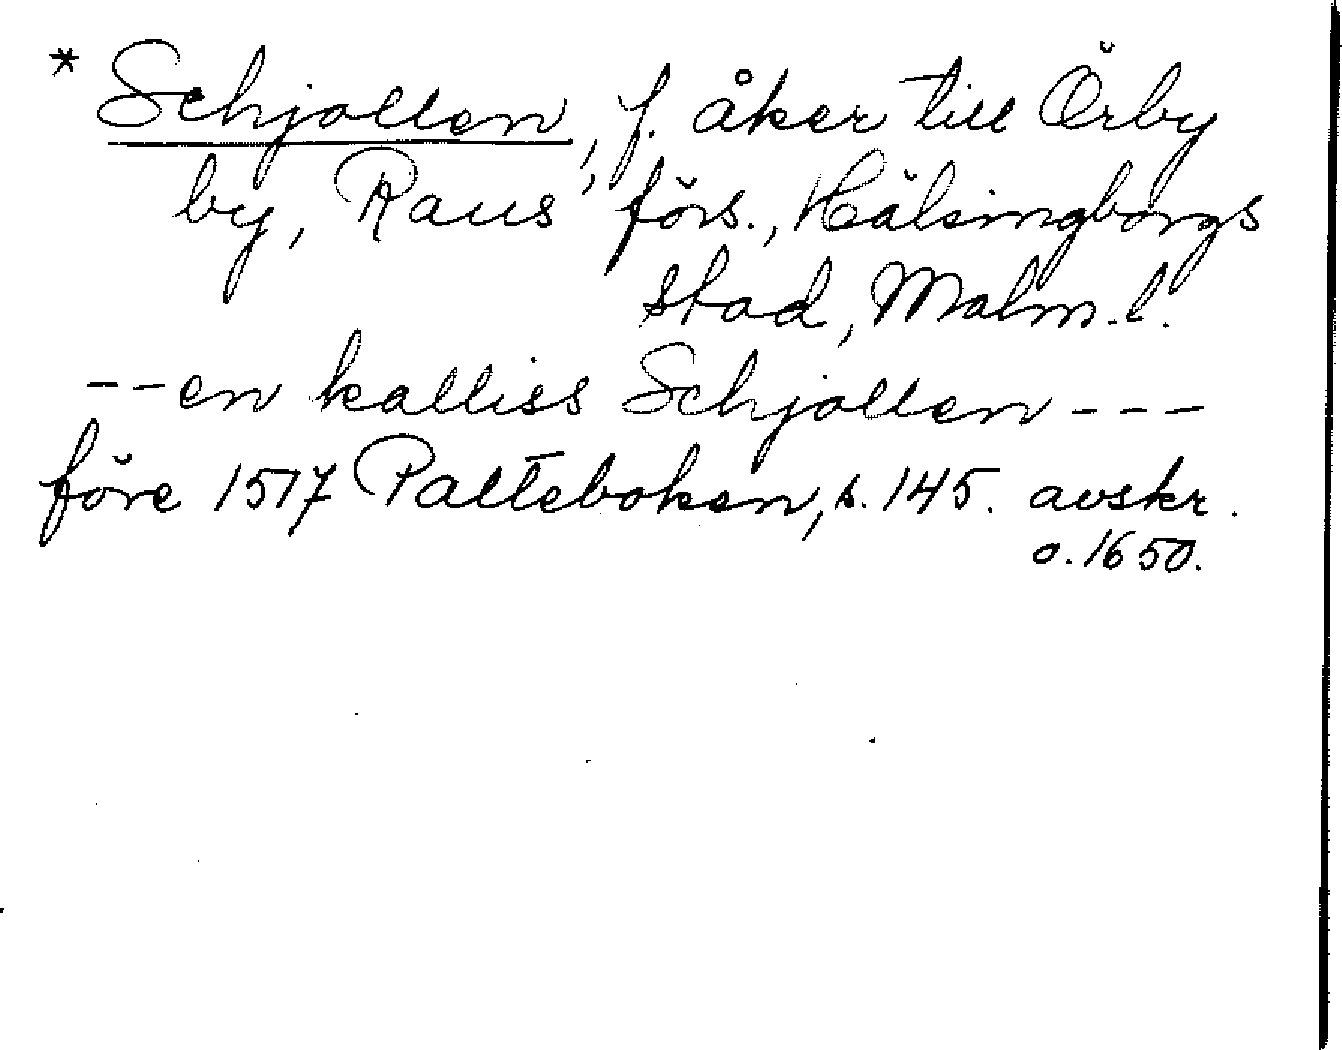 * Schjollen, f. åker till Örby
by, Raus förs., Hälsingborgs
stad, Malm. l.
-- en kalliss Schjollen ---
före 1517 Palteboken, s. 145. avskr.
o. 1650.